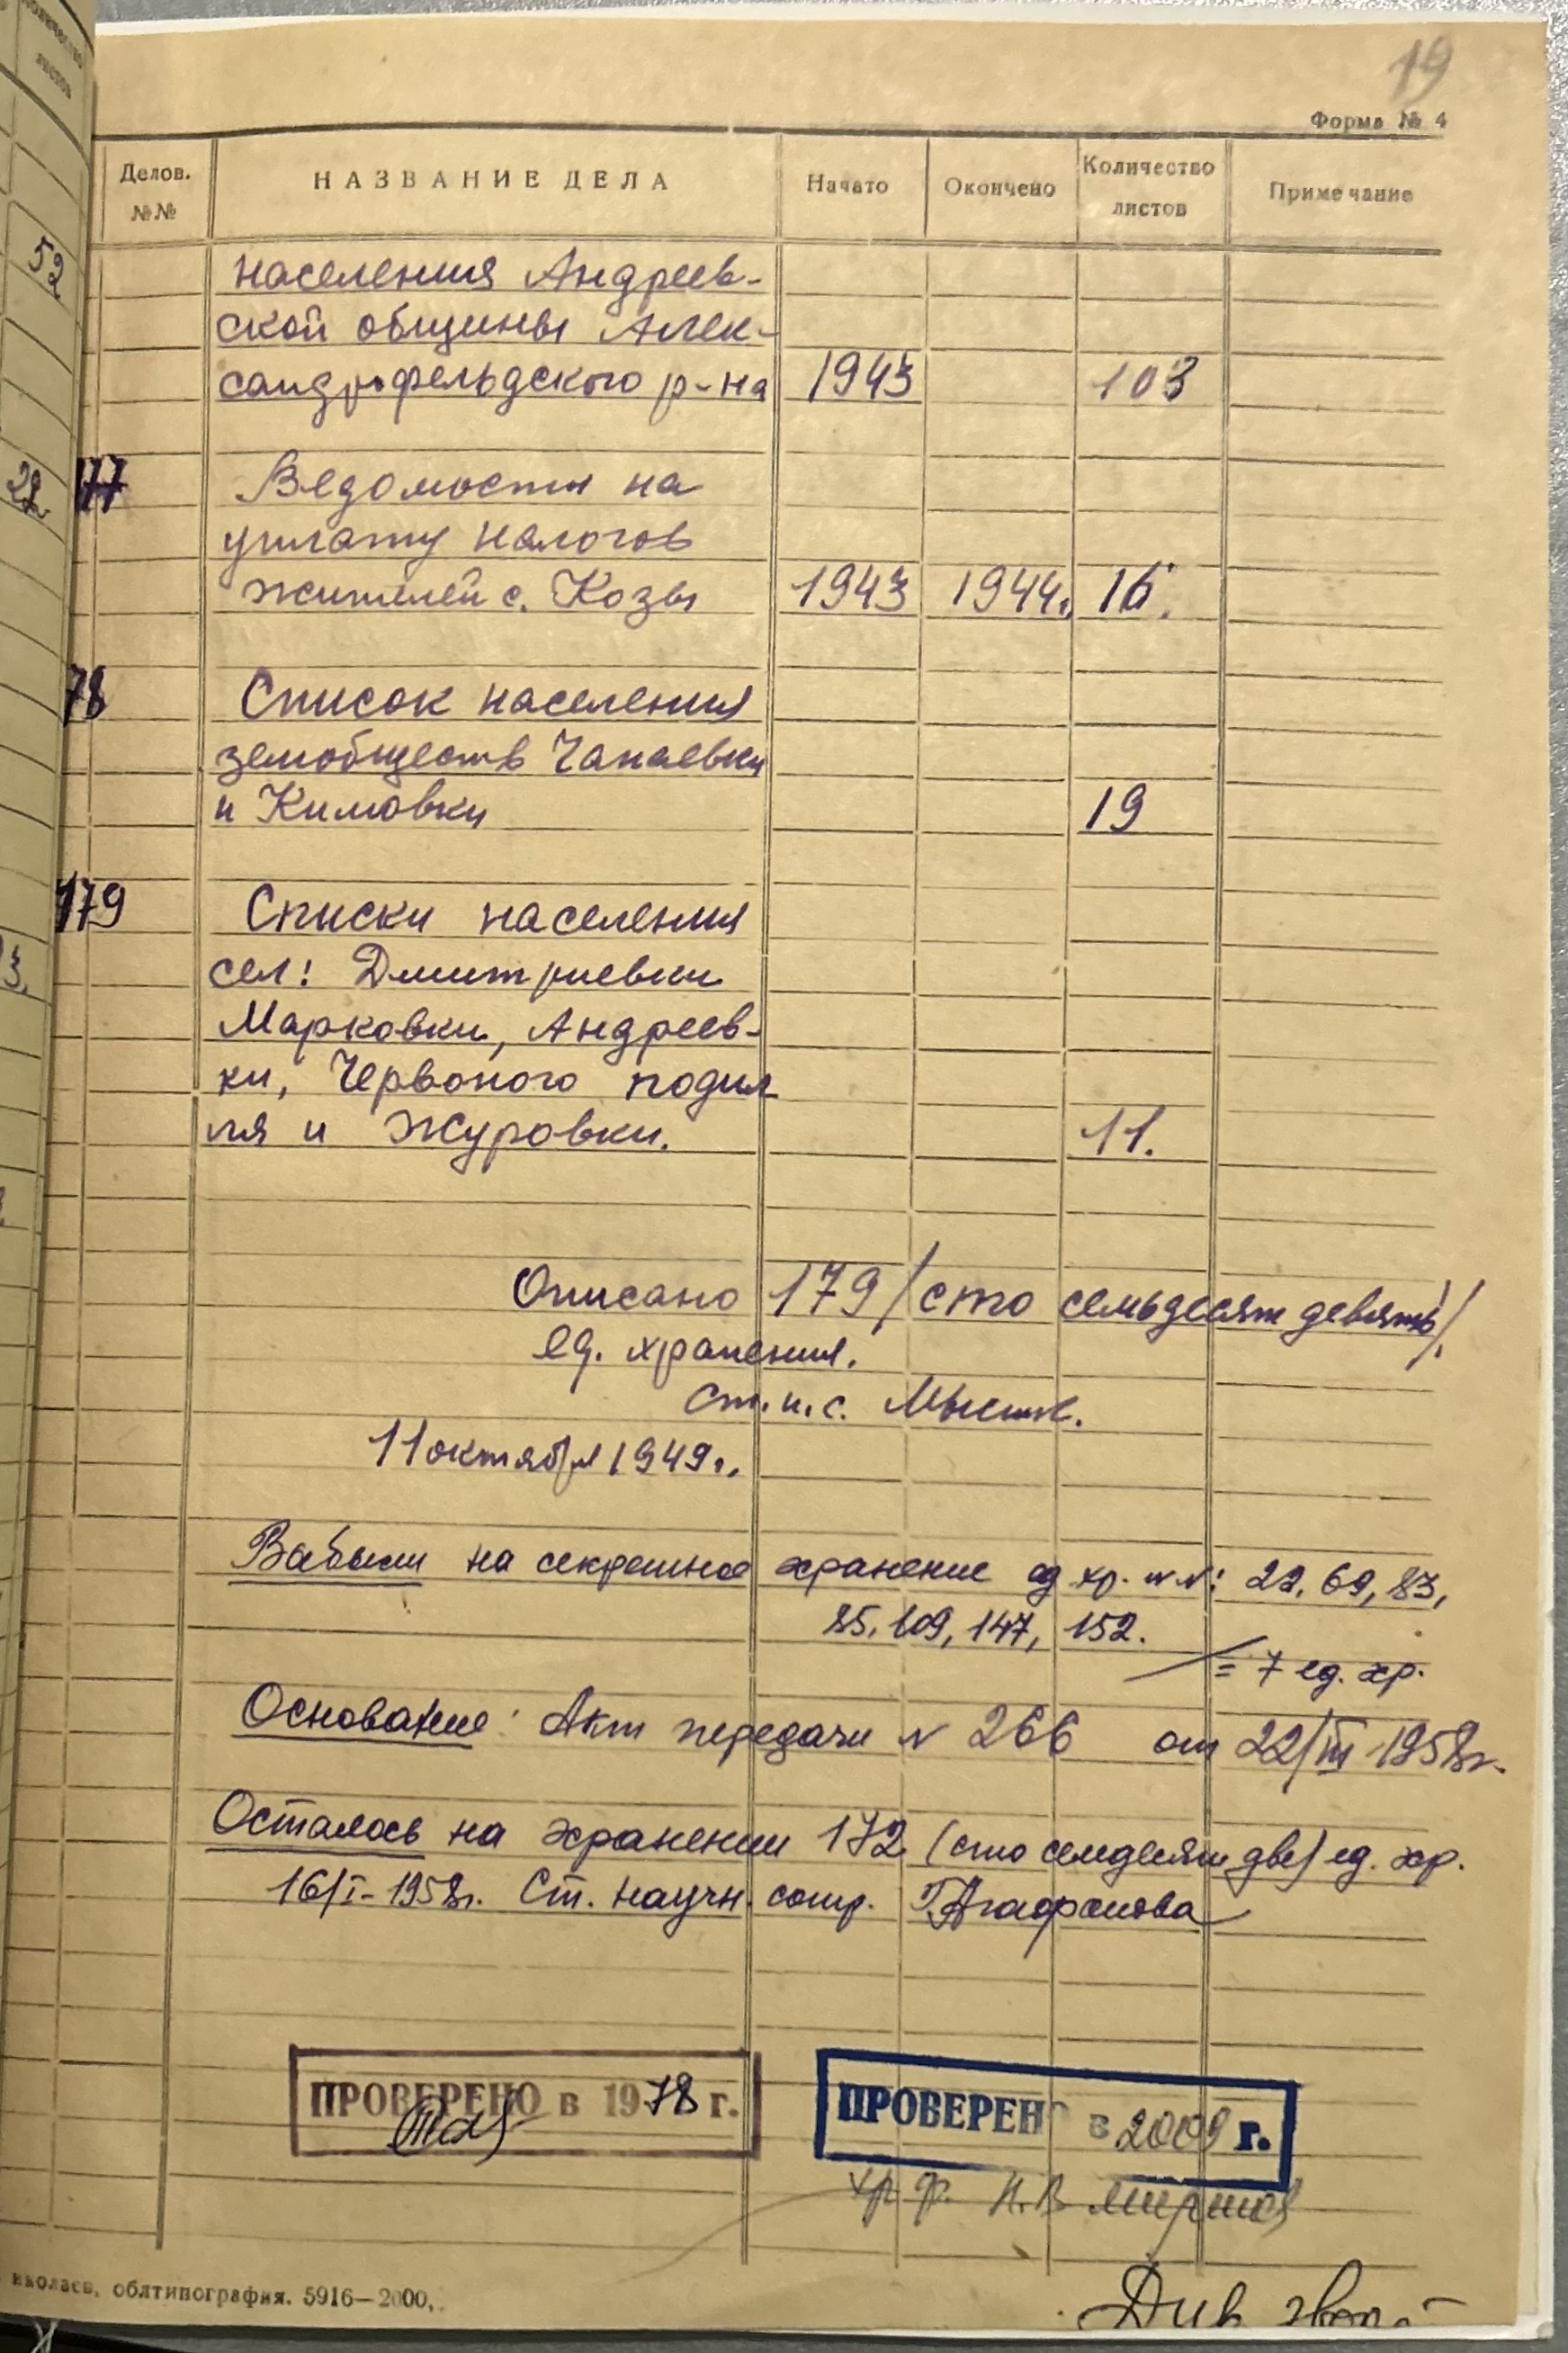 количество
листов
52
22
3.
19
Форма № 4
Делов. №№ НАЗВАНИЕ ДЕЛА Начато Окончено Количество листов Примечание
населения Андреев-
ской общины Алек-
сандрофельдского р-на 1943 103
77 Ведомости на
уплату налогов
жителей с. Козы 1943 1944г. 16.
78 Список населения
земобществ Чапаевки
и Кимовки 19
179 Списки населения
сел: Дмитриевки
Марковки, Андреев-
ки, Червоного подил
ля и Журовки. 11.
Описано 179 /сто семьдесят девять/
ед. хранения.
Ст. н. с.
11 октября 1949г.
на секретное хранение ед хр. №№: 22, 69, 83,
85, 109, 147, 152.
= 7 ед. хр.
Основание: Акт передачи № 266 от 22/III-1958г.
Осталось на хранении 172 (сто семдесят две) ед. хр.
16/I-1958г. Ст. научн. сотр. ТАгафонова
ПРОВЕРЕНО в 1978 г.
ПРОВЕРЕНО в 2009 г.
хр. ф. Н.В.
иколаев, облтипография. 5916—2000.
Див. звор